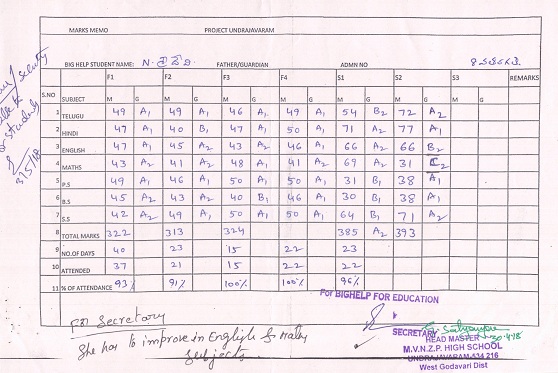 MARKS MEMO PROJECT UNDRAJAVARAM
BIG HELP STUDENT NAME: FATHER/GUARDIAN ADMN NO
F1 F2 F3 F4 S1 S2 S3 REMARKS
S.NO SUBJECT M G M G M G M G M G M G M G
1 TELUGU 49 A1 49 A1 46 A1 49 A1 54 B2 72 A2
2 HINDI 47 A1 40 B1 47 A1 50 A1 71 A2 77 A1
3 ENGLISH 47 A1 45 A2 43 A2 46 A1 66 A2 66 B2
4 MATHS 43 A2 41 A2 48 A1 41 A2 69 A2 31
5 P.S 49 A1 46 A1 50 A1 50 A1 31 B1 38 A1
6 B.S 45 A2 43 A2 40 B1 46 A1 30 B1 38 A1
7 S.S 42 A2 49 A1 50 A1 50 A1 64 B1 71 A2
8 TOTAL MARKS 322 313 324 385 A2 393
9 NO.OF DAYS 40 23 15 22 23
10 ATTENDED 37 21 15 22 22
11 % OF ATTENDANCE 93% 91% 100% 100% 96%
For BIGHELP FOR EDUCATION
Secretary
She has to improve in English & Maths
Subjects
SECRETARY
HEAD MASTER
M.V.N.Z.P. HIGH SCHOOL
UNDRAJAVARAM-534 216
West Godavari Dist